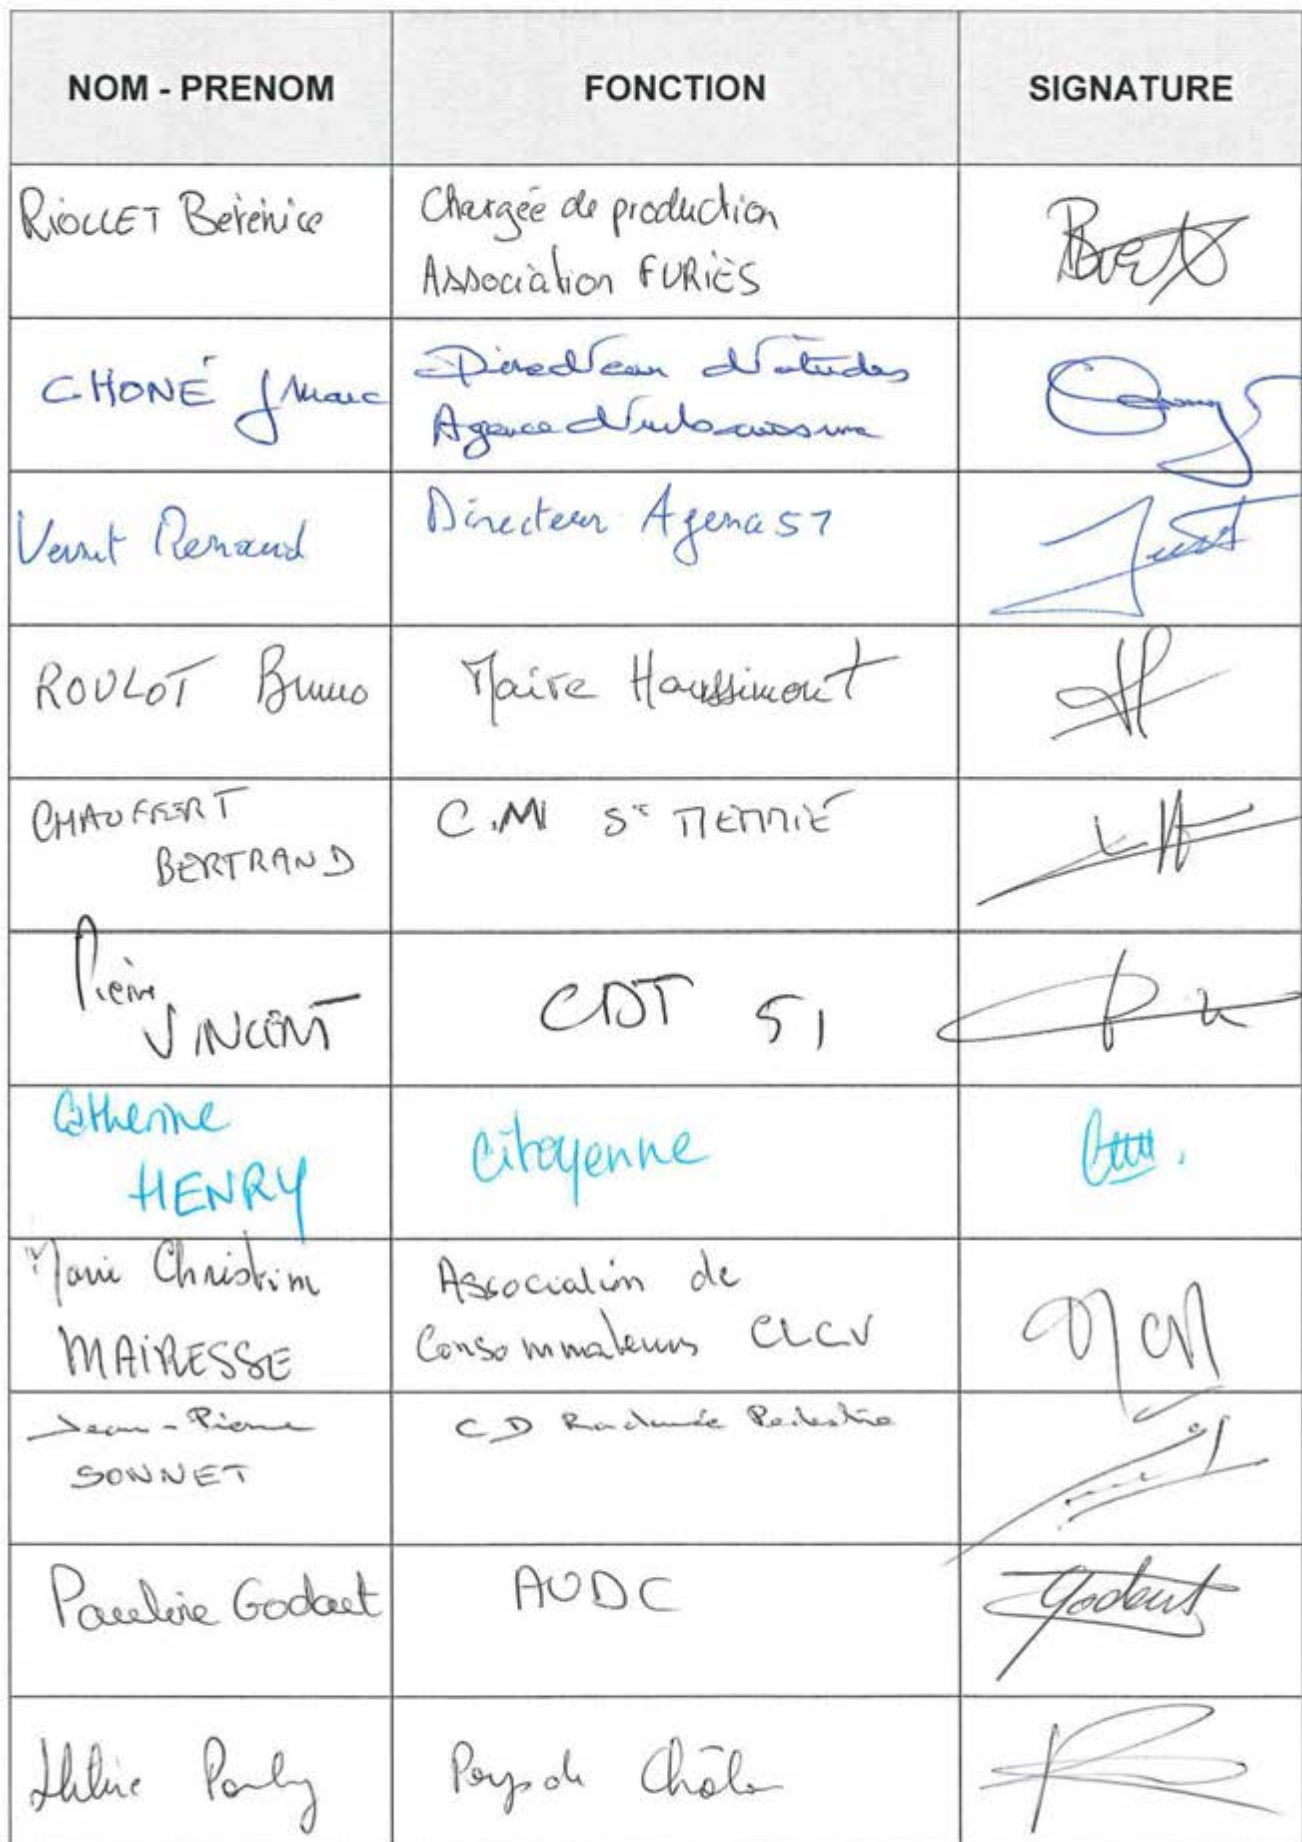 NOM - PRENOM FONCTION SIGNATURE
RIOLLET Bérénice Chargée de production
Association FURIES
CHONÉ J Marc Directeur d'études
Agence d'urbanisme
Renaud Directeur Agena 51
ROULOT Bruno Maire Haussimont
CHAUFFERT C.M St MEMMIE
BERTRAND
Pierre
VINCENT CDT 51
Catherine Citoyenne
HENRY
Marie Christine Association de
MAIRESSE Consommateurs CLCV
Jean-Pierre CD Randonnée Pédestre
SONNET
Pauline Godart AUDC
Godart
Pays de Châlons